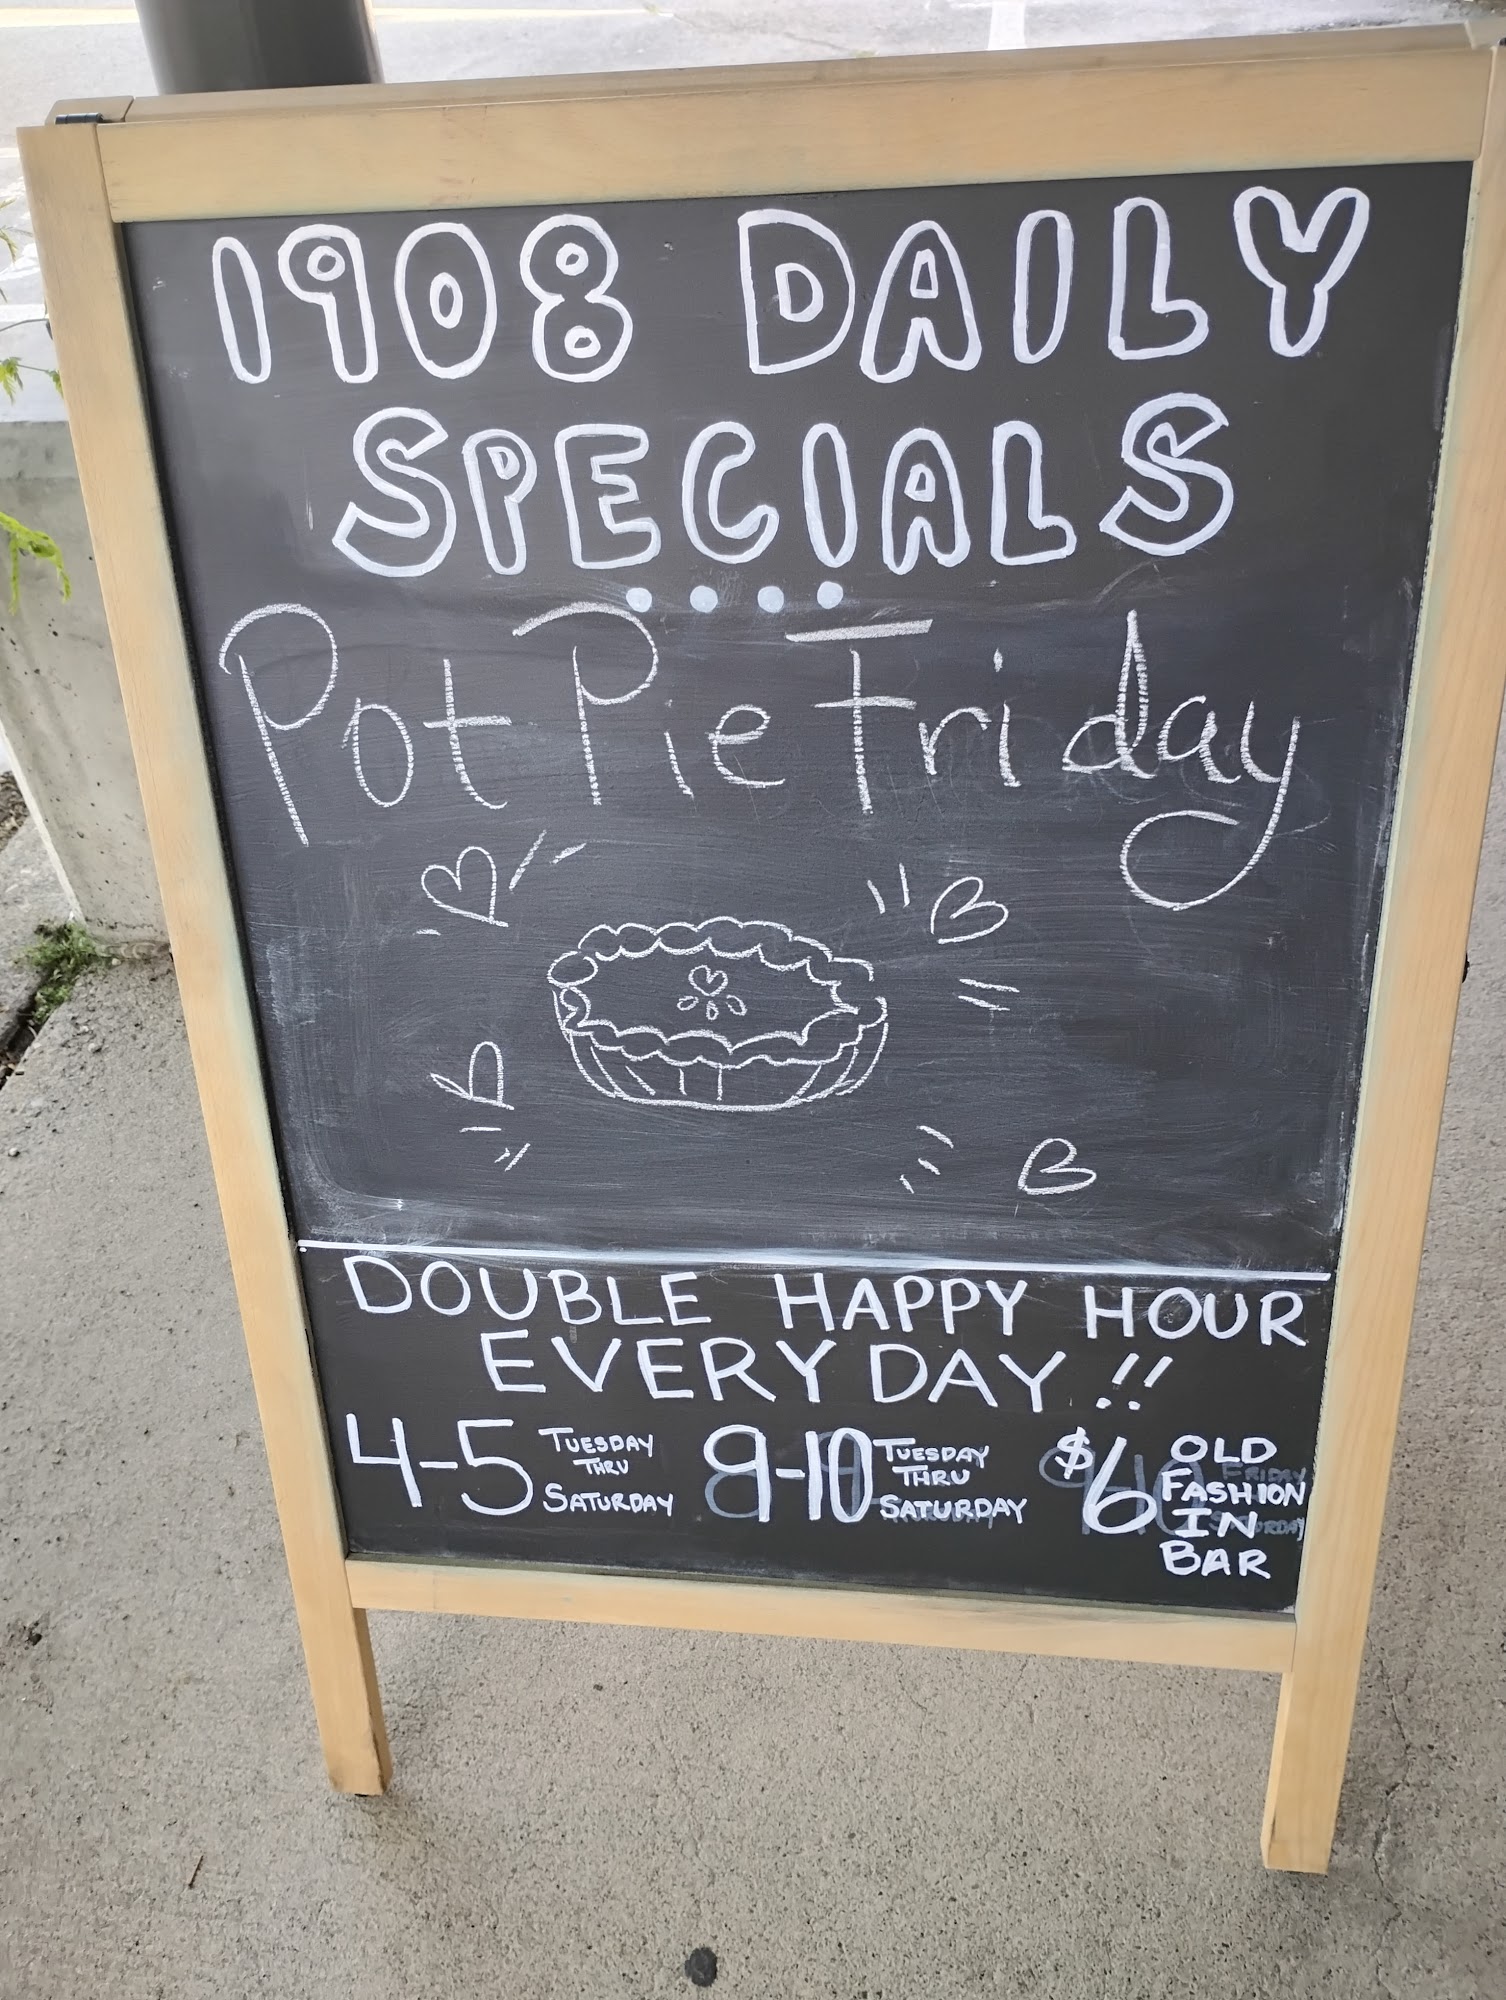 1908 DAILY
SPECIALS
Pot Pie Friday
DOUBLE HAPPY HOUR
EVERYDAY!!
4-5 TUESDAY THRU SATURDAY
9-10 TUESDAY THRU SATURDAY
$6 OLD FASHION IN BAR